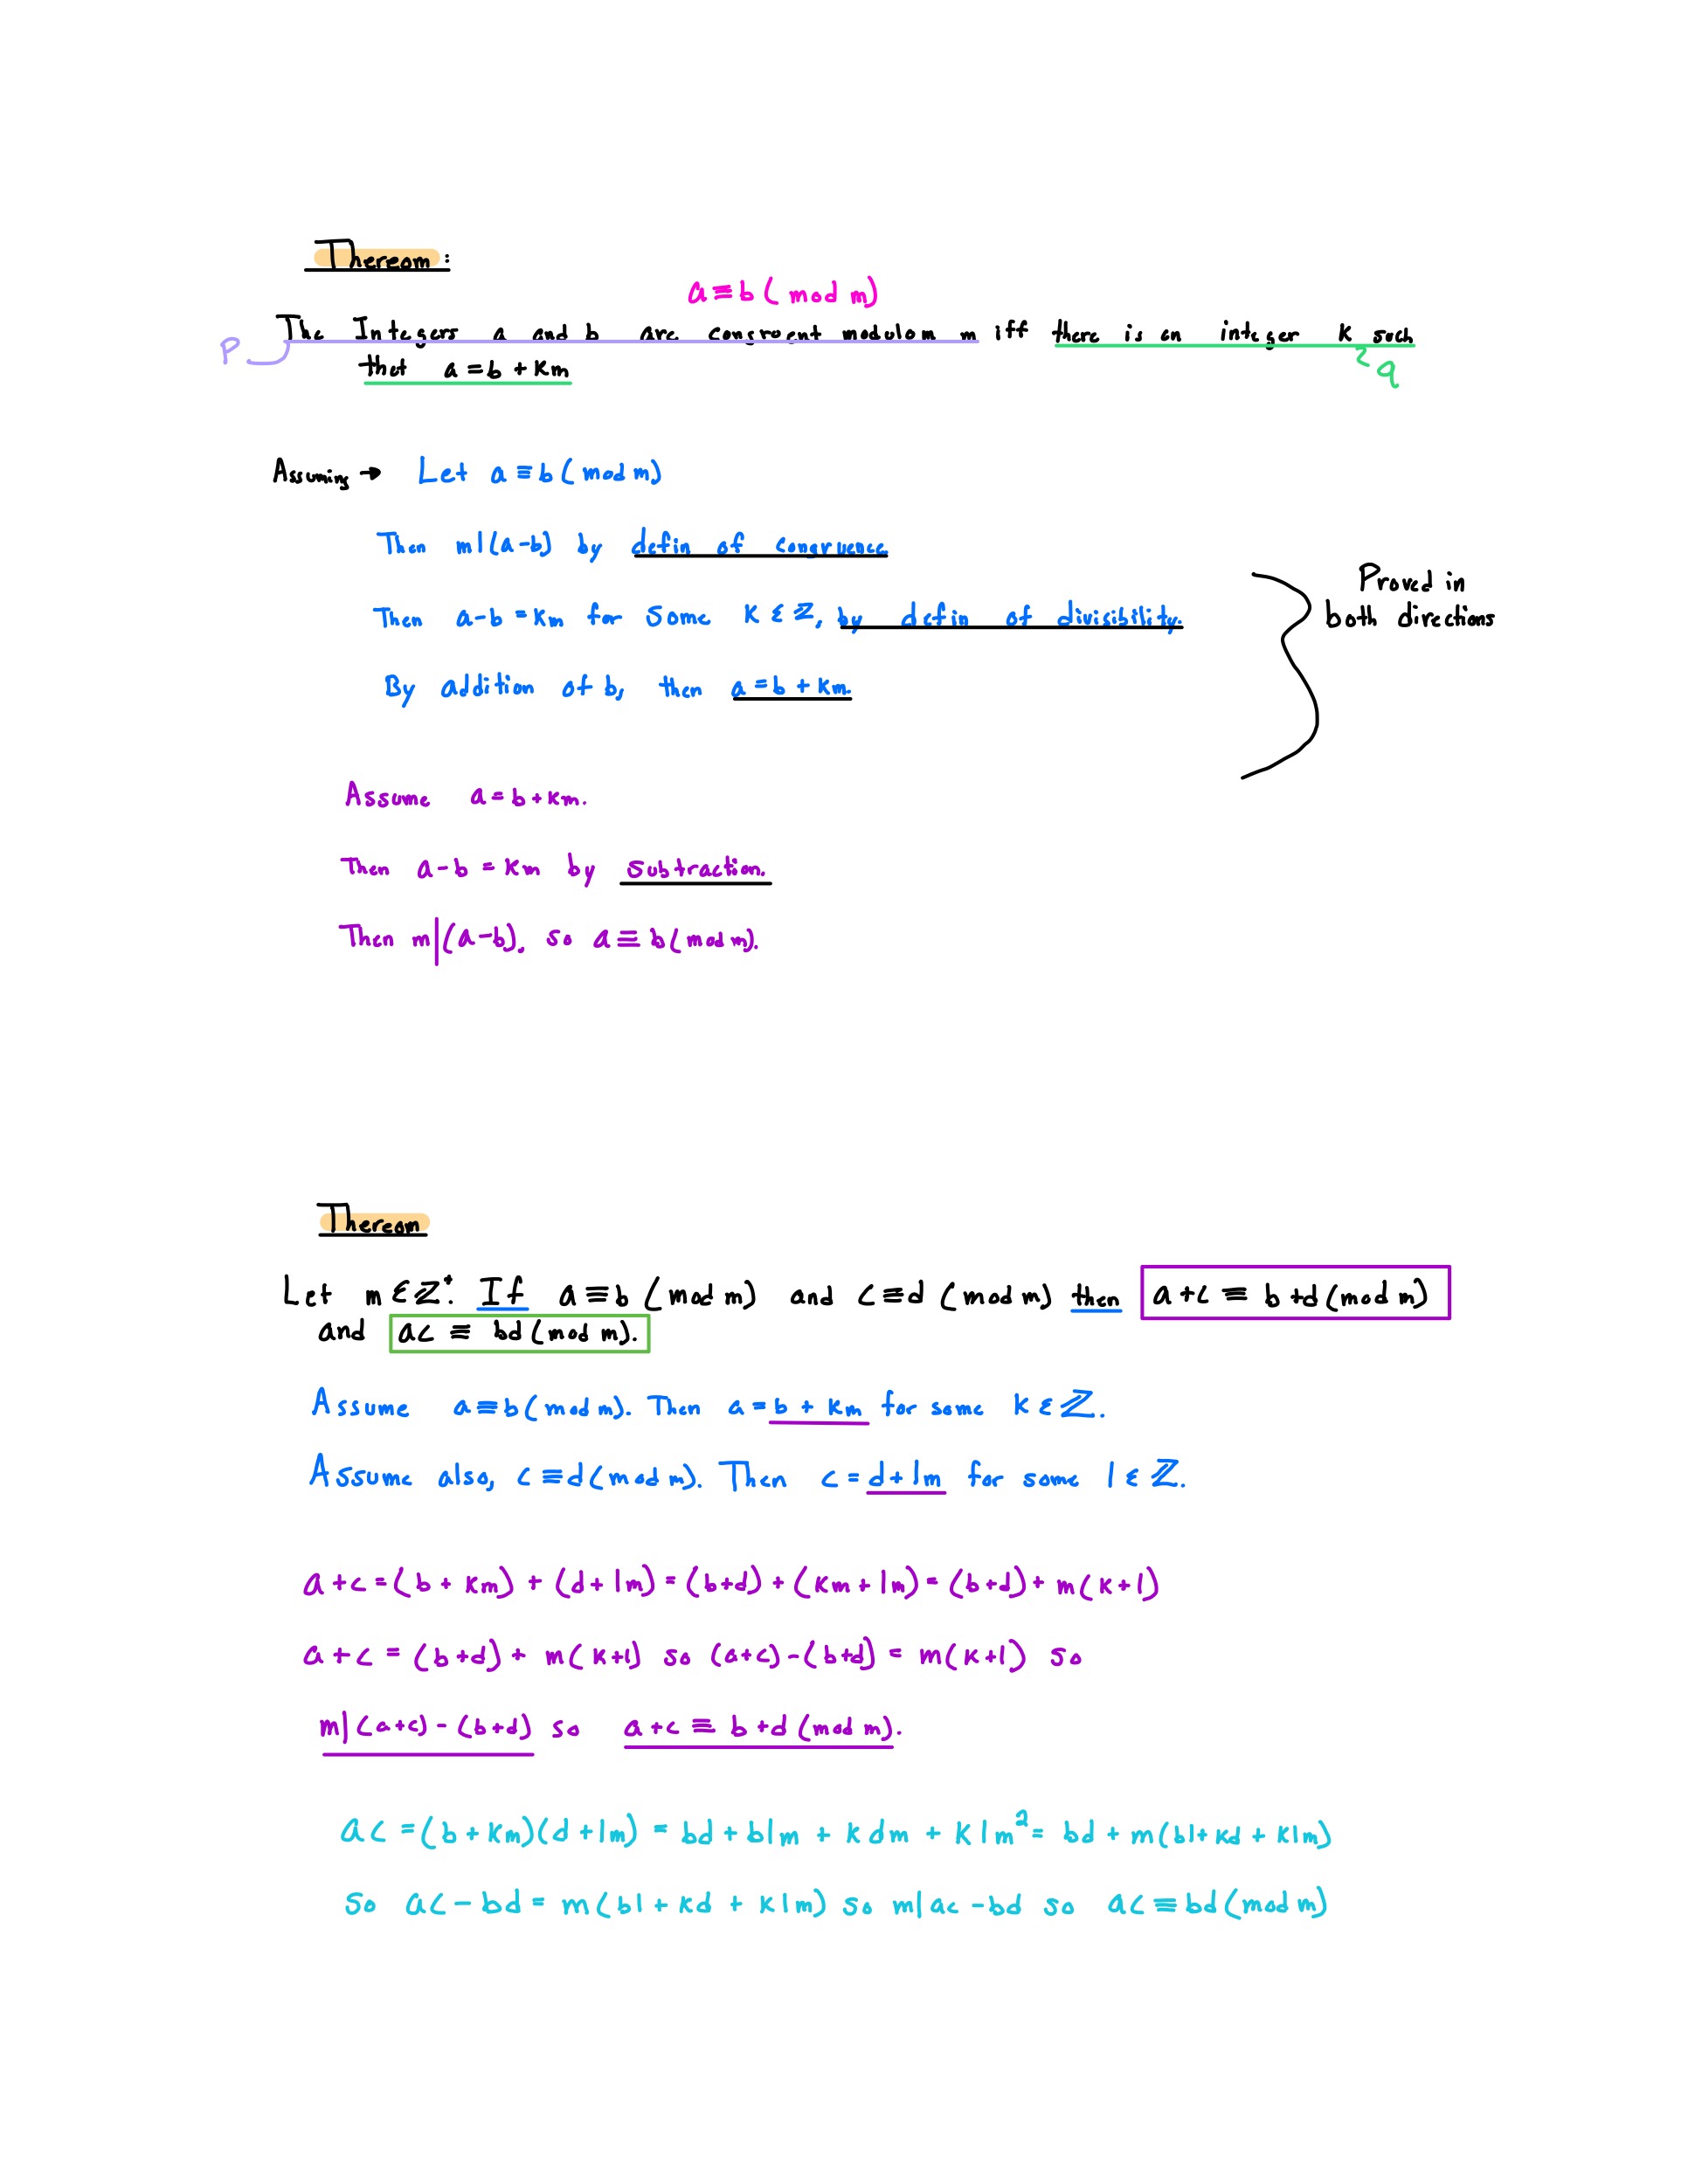 Thereom:
a≡b (mod m)
The Integers a and b are congruent modulom m iff there is an integer K such
P
that a = b + Km
q
Assuming → Let a ≡ b (mod m)
Then m|(a-b) by defin of congruence
Then a-b = Km for some K ε ℤ, by defin of divisibility.
By addition of b, then a = b + Km.
Proved in
both directions
Assume a = b + Km.
Then a-b = Km by subtraction.
Then m|(a-b), so a ≡ b (mod m).
Thereom
Let m ε ℤ⁺. If a ≡ b (mod m) and c ≡ d (mod m) then a+c ≡ b+d (mod m)
and ac ≡ bd (mod m).
Assume a ≡ b (mod m). Then a = b + Km for some K ε ℤ.
Assume also, c ≡ d (mod m). Then c = d+lm for some l ε ℤ.
a+c = (b + Km) + (d+lm) = (b+d) + (Km + lm) = (b+d) + m(K+l)
a+c = (b+d) + m(K+l) so (a+c)-(b+d) = m(K+l) so
m|(a+c) - (b+d) so a+c ≡ b+d (mod m).
ac = (b+Km)(d+lm) = bd + blm + Kdm + Klm² = bd + m(bl + Kd + Klm)
so ac - bd = m(bl + Kd + Klm) so m|ac - bd so ac ≡ bd (mod m)